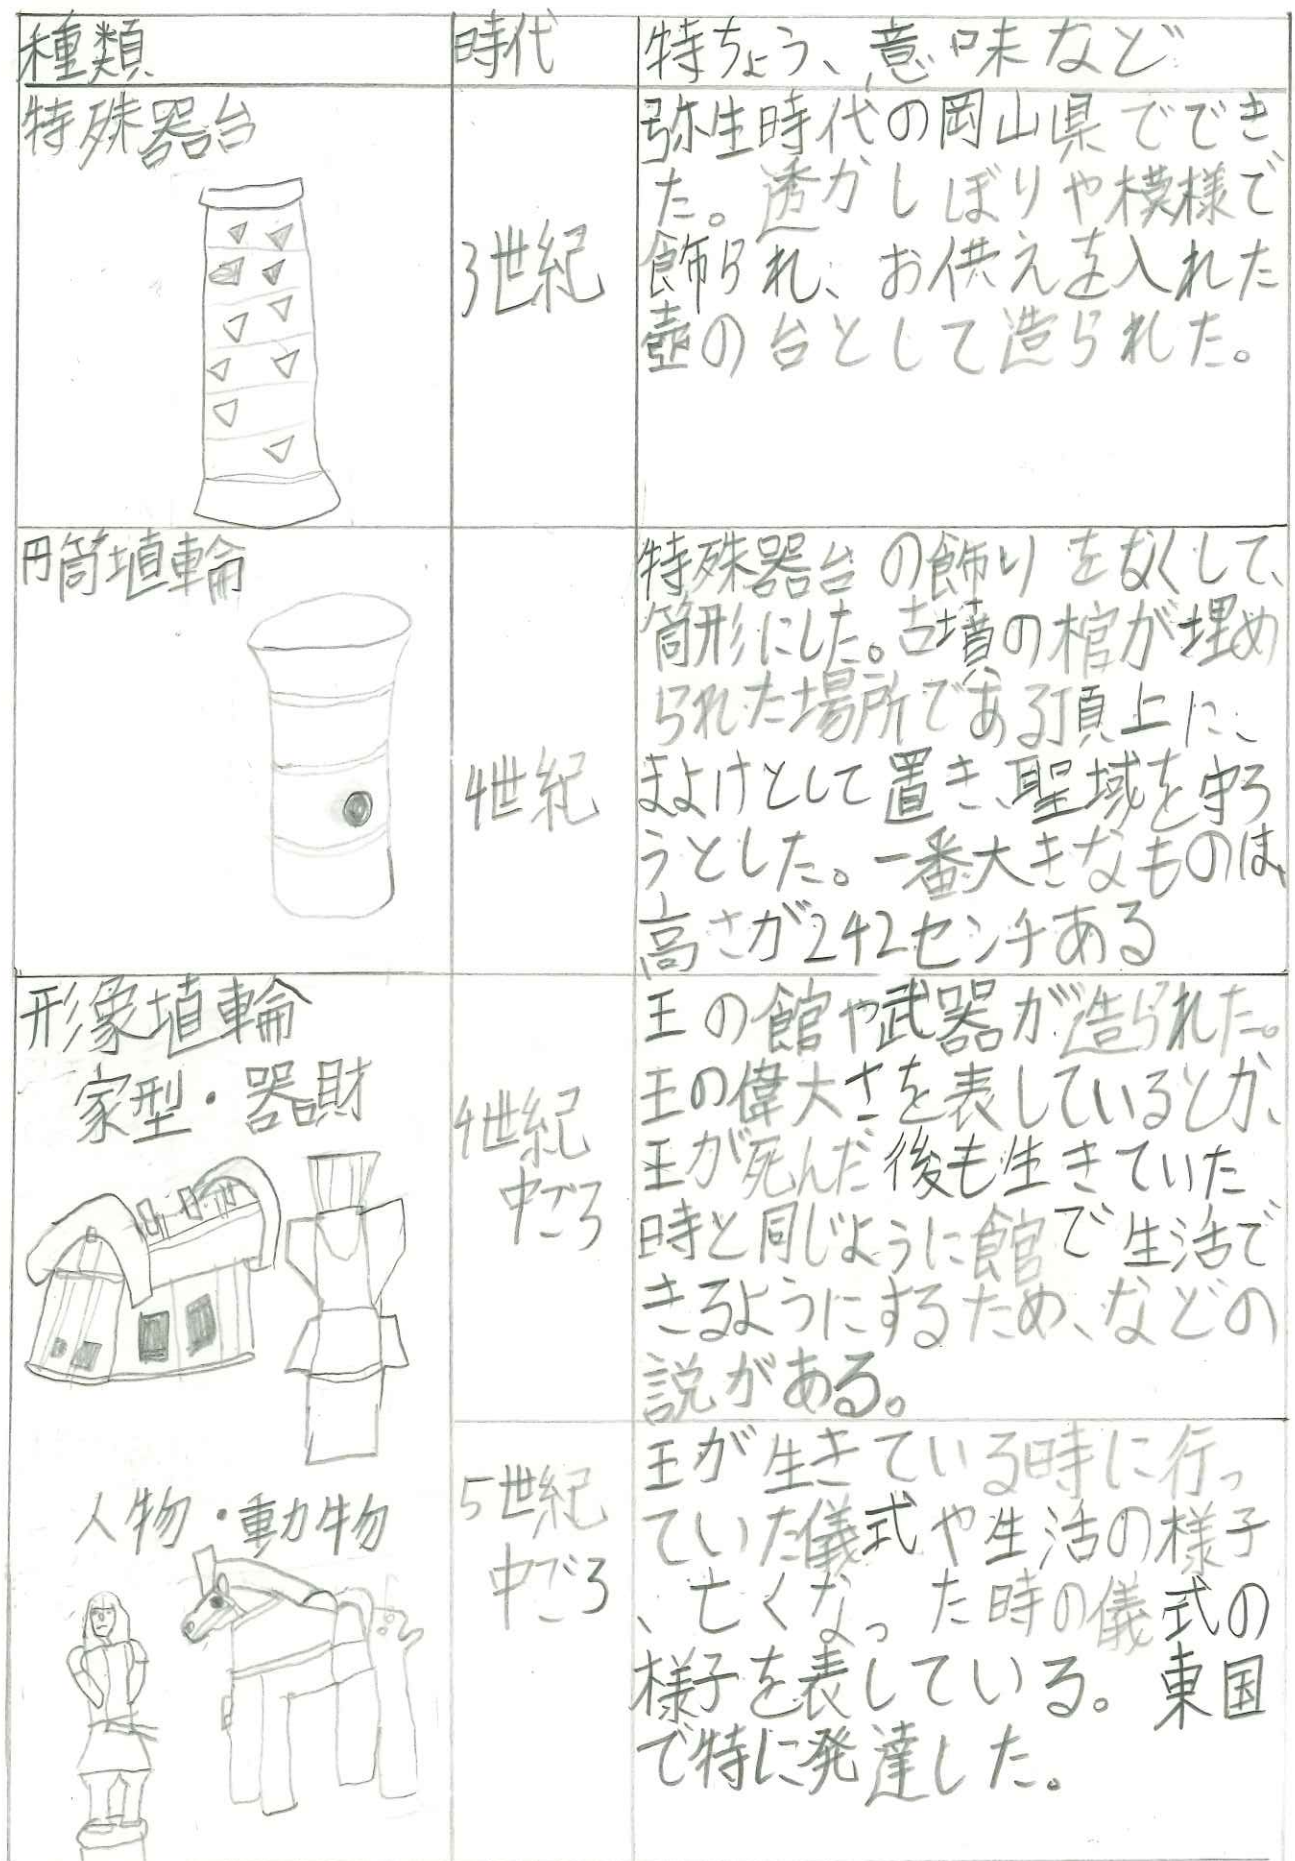 種類
時代
特ちょう、意味など
特殊器台
3世紀
弥生時代の岡山県ででき
た。透かしぼりや模様で
飾られ、お供えを入れた
壺の台として造られた。
円筒埴輪
4世紀
特殊器台の飾りをなくして、
筒形にした。古墳の棺が埋め
られた場所である頂上に、
まよけとして置き、聖域を守ろ
うとした。一番大きなものは、
高さが242センチある
形象埴輪
家型・器財
4世紀
中ごろ
王の館や武器が造られた。
王の偉大さを表しているとか、
王が死んだ後も生きていた
時と同じように館で生活で
きるようにするため、などの
説がある。
人物・動物
5世紀
中ごろ
王が生きている時に行っ
ていた儀式や生活の様子
、亡くなった時の儀式の
様子を表している。東国
で特に発達した。